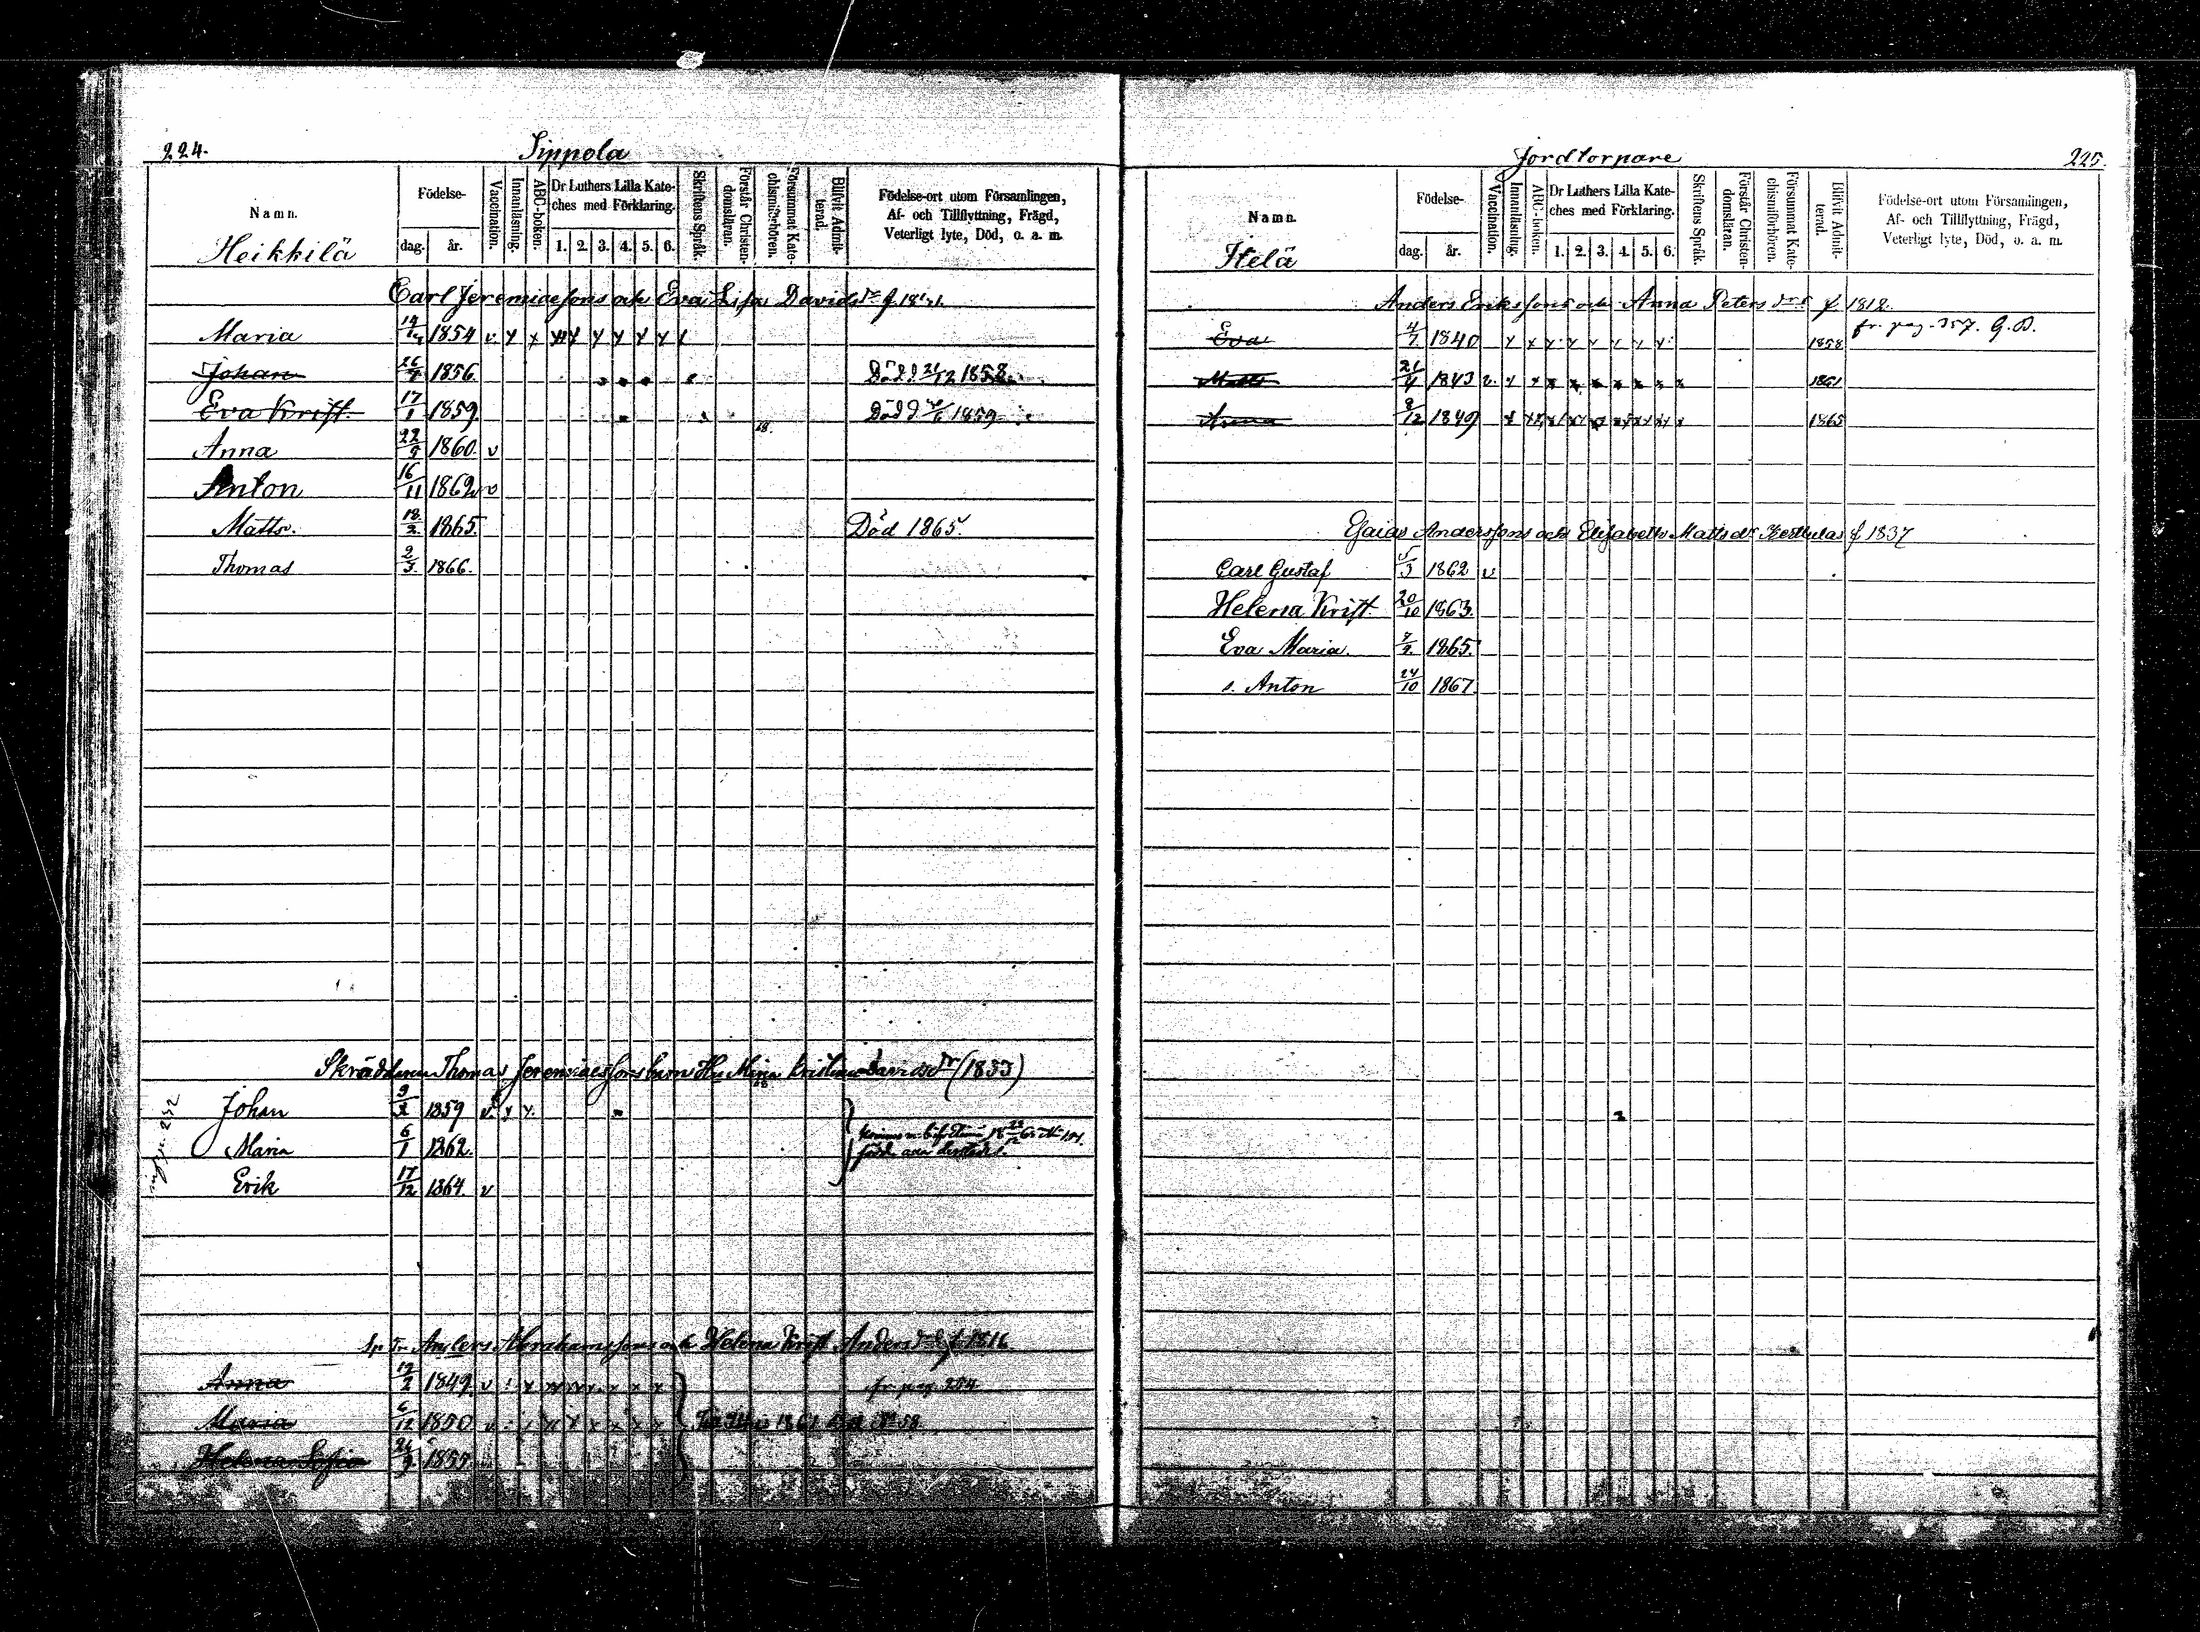 224.
Sippola
Namn.
Födelse-
dag.
år.
Vaccination.
Innanläsning.
ABC-boken.
Dr Luthers Lilla Kate-
ches med Förklaring.
1. 2. 3. 4. 5. 6.
Skriftens Språk.
Förstår Christen-
domsläran.
Försummat Kate-
chismiförhören.
Blifvit Admit-
terad.
Födelse-ort utom Församlingen,
Af- och Tillflyttning, Frägd,
Veterligt lyte, Död, o. a. m.
Heikkilä
Carl Jeremiaesons och Eva Lisa Davidsdr f.
Maria 1854 v
Johan 26 1856. Död d 1858
Eva Krist. 17/1 1859 Död d 1859
Anna 22/9 1860 v
Anton 16/11 1862 v
Matts. 18/2 1865. Död 1865.
Thomas 2/3 1866.
Skräddaren Thomas Jeremiaesons barn Hu Kristina Davidsdr (1833)
Johan 1859 v
Maria 6/1 1862.
Erik 17/12 1864. v
Anders Abrahamssons och Helena Krist Andersdr f. 1816
Anna 1849 v fr. pag. 254
Maria 6/12 1850 v 1861
Helena Sofia 1855
Jordtorpare
225.
Namn.
Födelse-
dag.
år.
Vaccination.
Innanläsning.
ABC-boken.
Dr Luthers Lilla Kate-
ches med Förklaring.
1. 2. 3. 4. 5. 6.
Skriftens Språk.
Förstår Christen-
domsläran.
Försummat Kate-
chismiförhören.
Blifvit Admit-
terad.
Födelse-ort utom Församlingen,
Af- och Tillflyttning, Frägd,
Veterligt lyte, Död, o. a. m.
Itelä
Anders Erikssons och Anna Petersdr f 1812.
fr. pag. 357. G. B.
Eva 4/7 1840 1858
Matts 21/4 1843 v. 1861
Anna 8/12 1849 1865
Esaias Anderssons och Elisabeth Mattsdr f 1837
Carl Gustaf 5/3 1862 v
Helena Krist. 20/10 1863.
Eva Maria. 1865.
s. Anton 24/10 1867